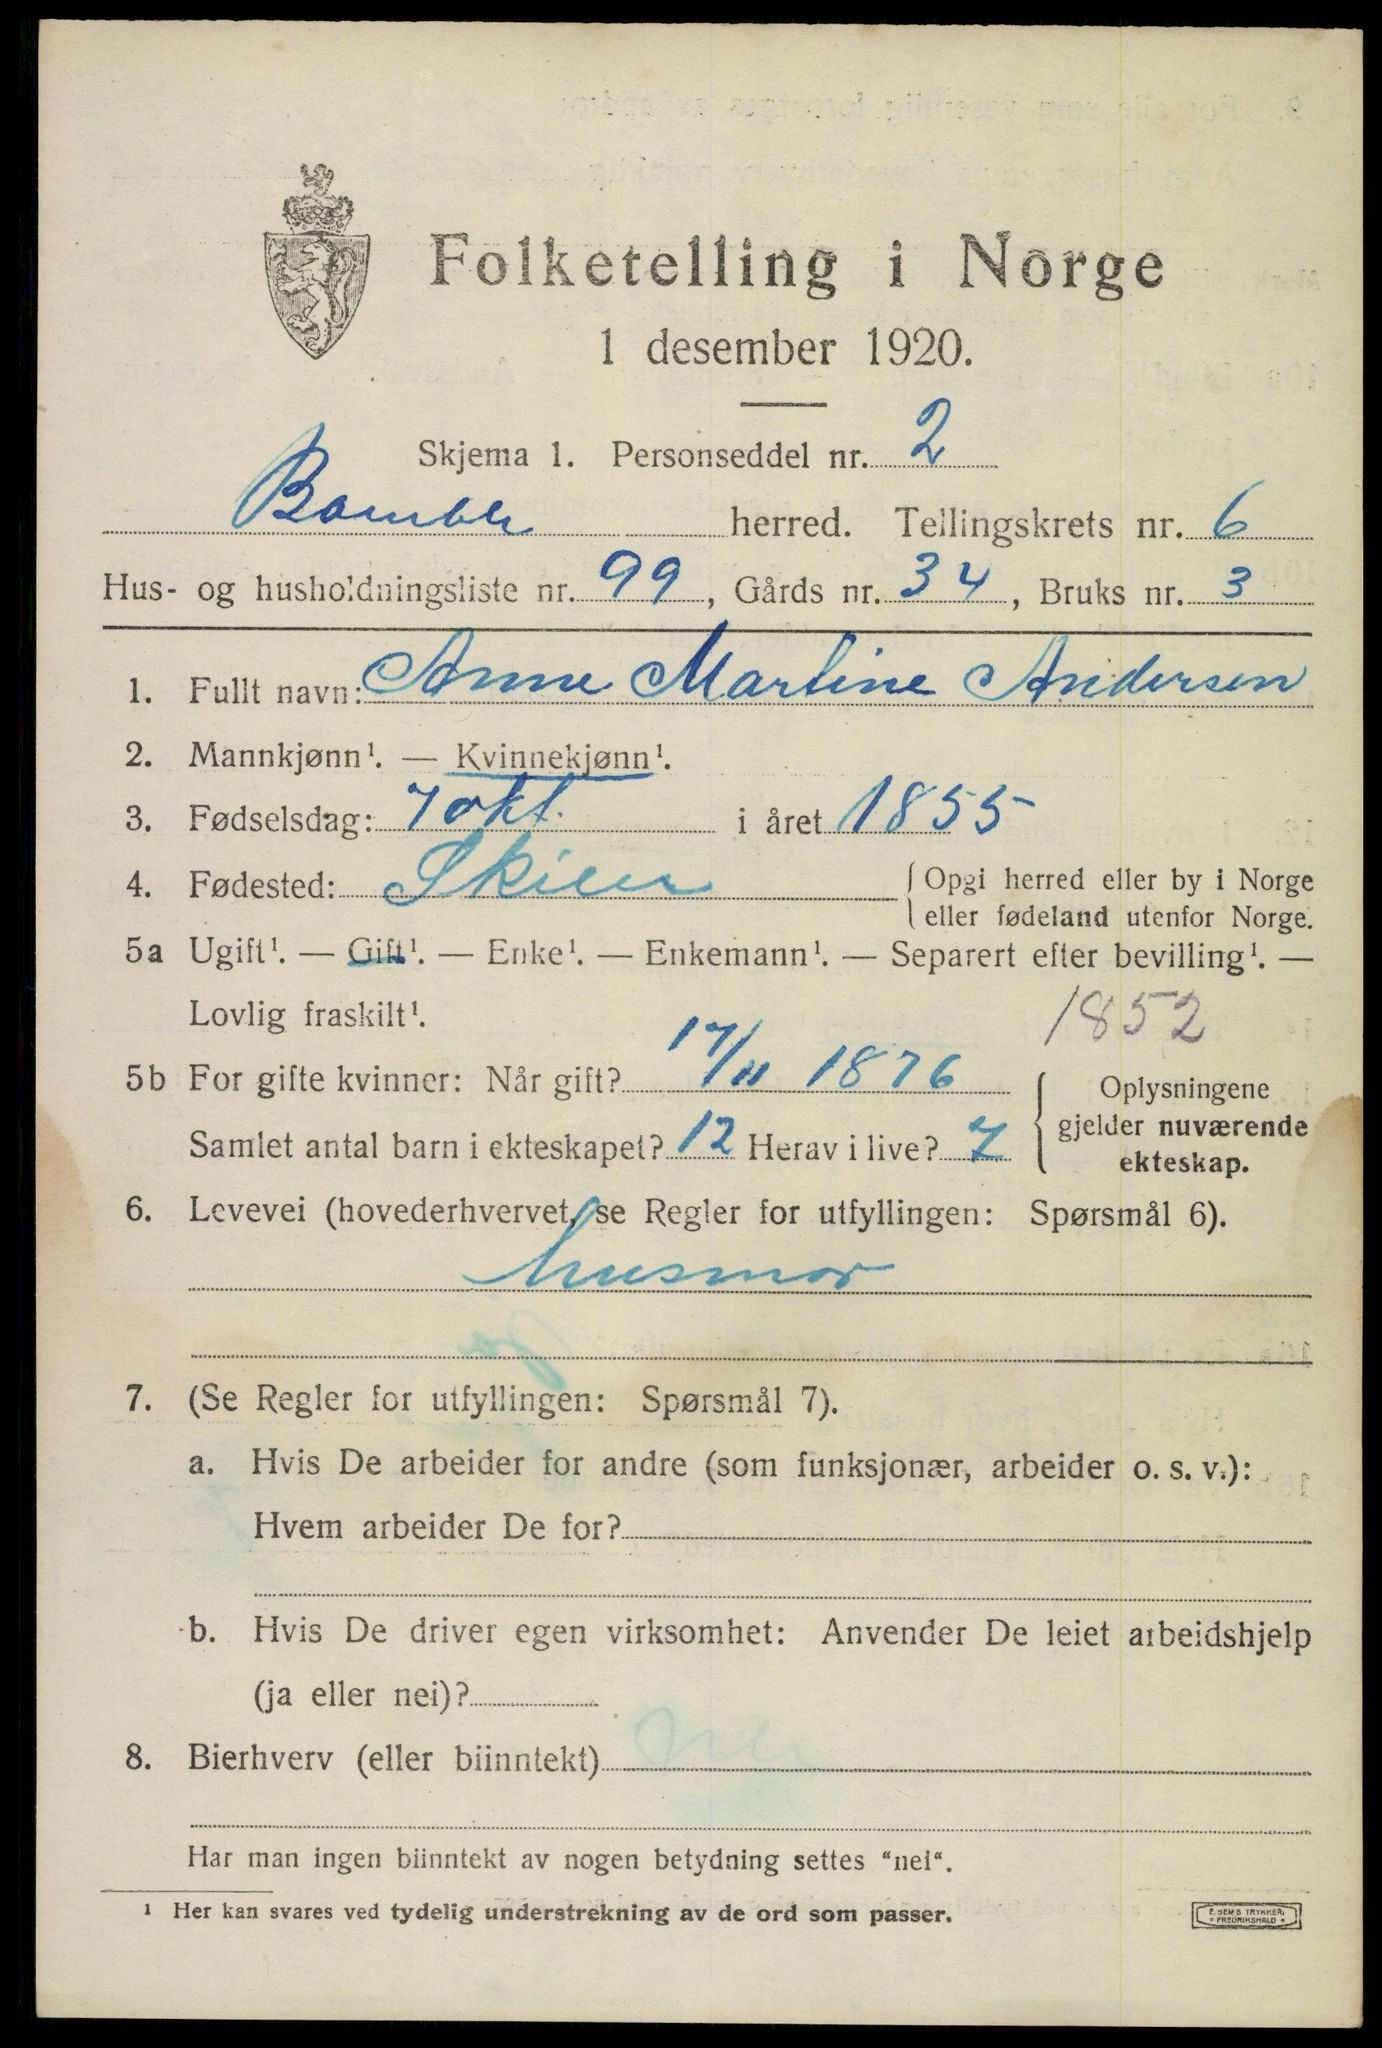 Folketelling i Norge
1 desember 1920.
Skjema 1. Personseddel nr. 2
Bamble herred. Tellingskrets nr. 6
Hus- og husholdningsliste nr. 99, Gårds nr. 34, Bruks nr. 3
1. Fullt navn: Anne Martine Andersen
2. Mannkjønn¹. — Kvinnekjønn¹.
3. Fødselsdag: 7 okt. i året 1855
4. Fødested: Skien {Opgi herred eller by i Norge
eller fødeland utenfor Norge.
5a Ugift¹. — Gift¹. — Enke¹. — Enkemann¹. — Separert efter bevilling¹. —
Lovlig fraskilt¹. 1852
5b For gifte kvinner: Når gift? 17/11 1876 { Oplysningene
gjelder nuværende
Samlet antal barn i ekteskapet? 12 Herav i live? 7
ekteskap.
6. Levevei (hovederhvervet, se Regler for utfyllingen: Spørsmål 6).
husmor
7. (Se Regler for utfyllingen: Spørsmål 7).
a. Hvis De arbeider for andre (som funksjonær, arbeider o. s. v.):
Hvem arbeider De for?
b. Hvis De driver egen virksomhet: Anvender De leiet arbeidshjelp
(ja eller nei)?
8. Bierhverv (eller biinntekt)
Har man ingen biinntekt av nogen betydning settes "nei".
¹ Her kan svares ved tydelig understrekning av de ord som passer.
E. SEMS TRYKKERI
FREDRIKSHALD